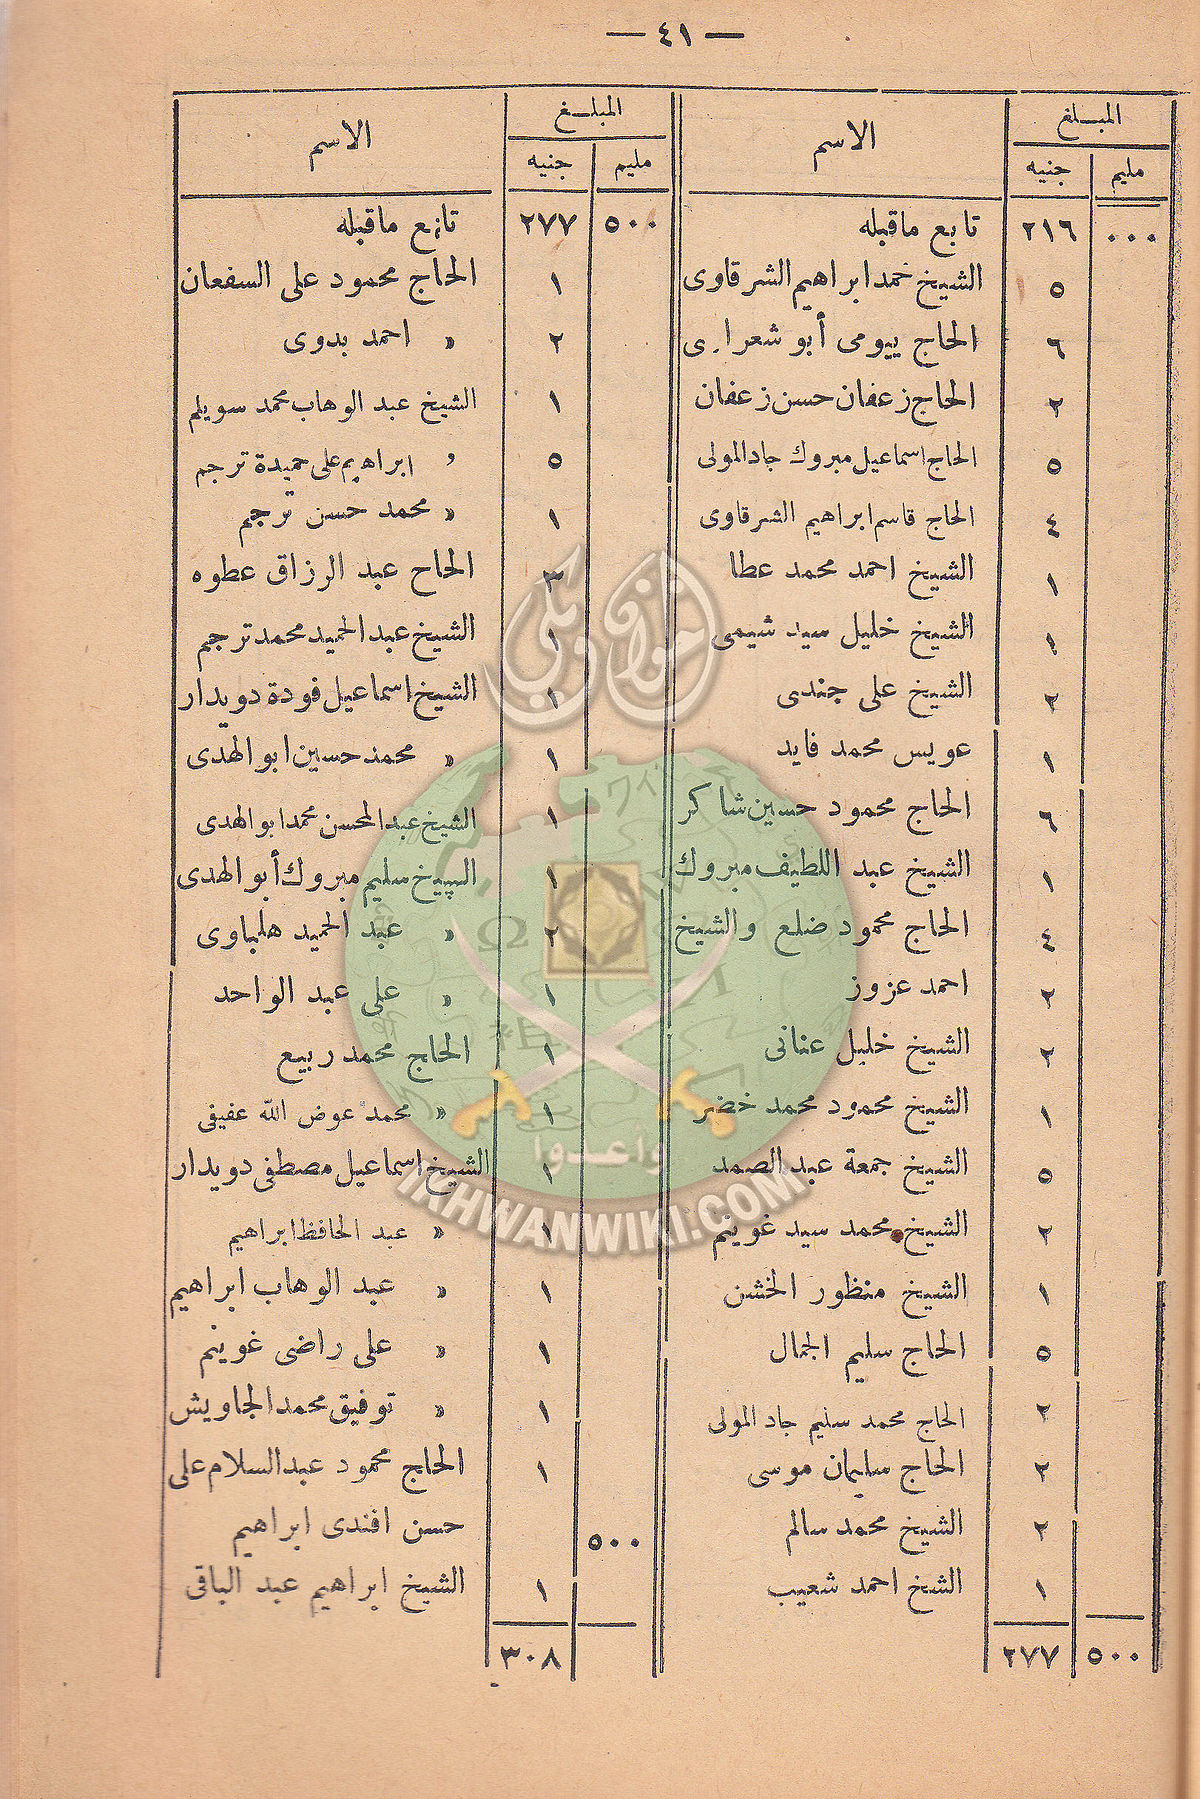 — ٤١ —
المبلغ الاسم
مليم جنيه
٠٠٠ ٢١٦ تابع ماقبله
٥ الشيخ محمد ابراهيم الشرقاوى
٦ الحاج بيومى أبو شعرا.ى
٢ الحاج زعفان حسن زعفان
٥ الحاج اسماعيل مبروك جاد المولى
٤ الحاج قاسم ابراهيم الشرقاوى
١ الشيخ احمد محمد عطا
١ الشيخ خليل سيد شيمى
٢ الشيخ على جندى
١ عويس محمد فايد
٦ الحاج محمود حسين شاكر
١ الشيخ عبد اللطيف مبروك
٤ الحاج محمود ضلع والشيخ
٢ احمد عزوز
٢ الشيخ خليل عنانى
١ الشيخ محمود محمد خضر
٥ الشيخ جمعة عبد الصمد
٢ الشيخ محمد سيد غوينم
١ الشيخ منظور الخشن
٥ الحاج سليم الجمال
٢ الحاج محمد سليم جاد المولى
٢ الحاج سليمان موسى
٢ الشيخ محمد سالم
١ الشيخ احمد شعيب
٥٠٠ ٢٧٧
المبلغ الاسم
مليم جنيه
٥٠٠ ٢٧٧ تابع ماقبله
١ الحاج محمود على السفعان
٢ » احمد بدوى
١ الشيخ عبد الوهاب محمد سويلم
٥ » ابراهيم على حميدة ترجم
١ » محمد حسن ترجم
٣ الحاج عبد الرزاق عطوه
١ الشيخ عبد الحميد محمد ترجم
١ الشيخ اسماعيل فودة دويدار
١ » محمد حسين ابو الهدى
١ الشيخ عبد المحسن محمد ابو الهدى
١ الشيخ سليم مبروك أبو الهدى
٢ » عبد الحميد هلباوى
١ » على عبد الواحد
١ الحاج محمد ربيع
١ » محمد عوض الله عفيفى
١ الشيخ اسماعيل مصطفى دويدار
١ » عبد الحافظ ابراهيم
١ » عبد الوهاب ابراهيم
١ » على راضى غوينم
١ » توفيق محمد الجاويش
١ الحاج محمود عبد السلام على
٥٠٠ حسن افندى ابراهيم
١ الشيخ ابراهيم عبد الباقى
٣٠٨
إخوان ويكي
وأعدوا
IKHWANWIKI.COM